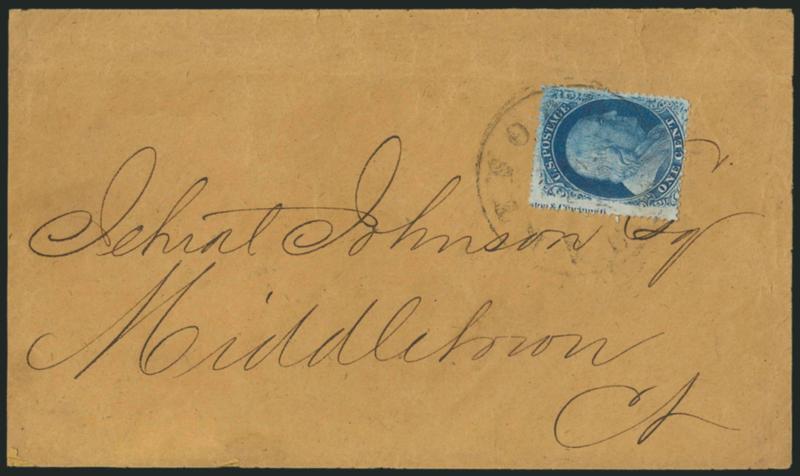 U.S. POSTAGE
ONE CENT
Jehial Johnson Esq
Middletown
Ct